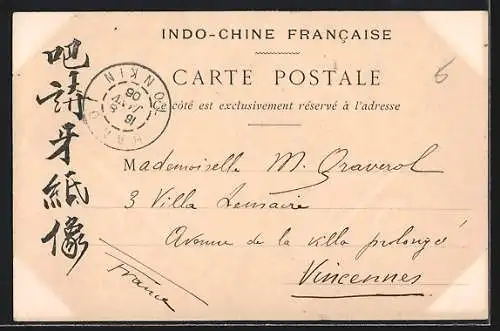 INDO-CHINE FRANÇAISE
CARTE POSTALE
Ce côté est exclusivement réservé à l'adresse
6
Mademoiselle M. Graverol
3 Villa Lemsaire
Avenue de la villa prolongée
Vincennes
France
牙紙像
TONKIN
16
06